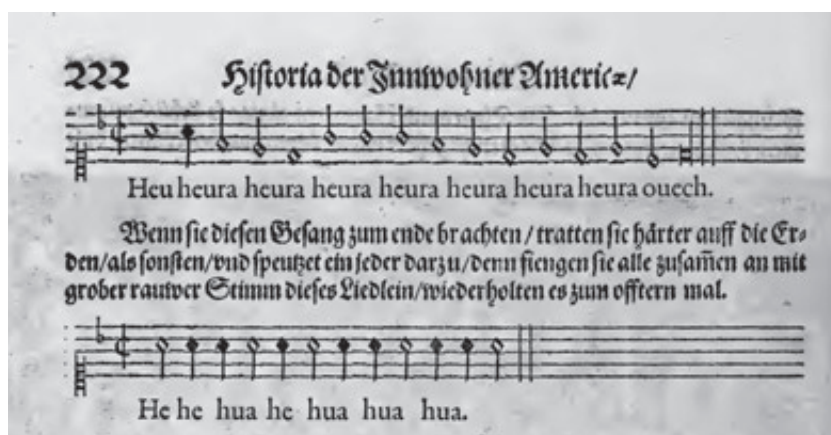 222 Historia der Innwohner Americæ/
Heu heura heura heura heura heura heura heura ouech.
Wenn sie diesen Gesang zum ende brachten/tratten sie härter auff die Er⸗
den/als sonsten/vnd speutzet ein jeder darzu/denn fiengen sie alle zusam̃en an mit
grober rauwer Stimm dieses Liedlein/wiederholten es zum offtern mal.
He he hua he hua hua hua.